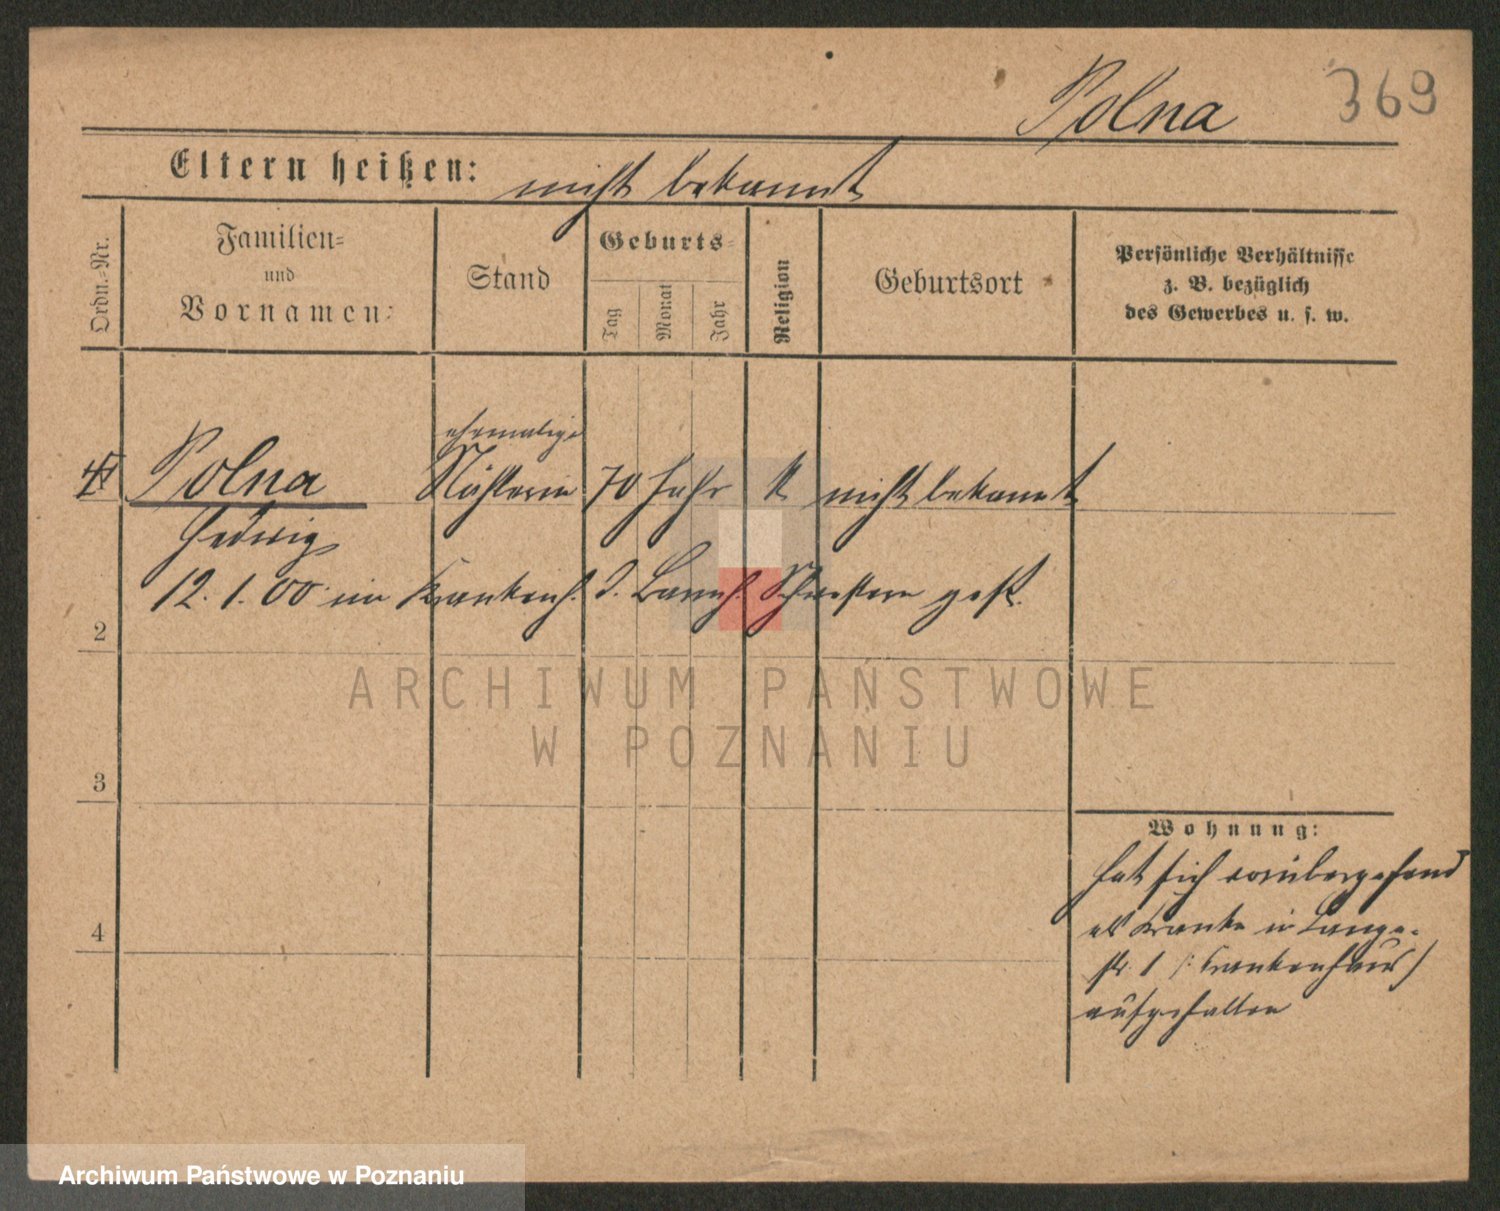 Polna 369
Eltern heißen: nicht bekannt
Ordn.-Nr.
Familien-
und
Vornamen:
Stand
Geburts-
Tag
Monat
Jahr
Religion
Geburtsort
Persönliche Verhältnisse
z. B. bezüglich
des Gewerbes u. s. w.
ehemalige
Polna Nähterin 70 Jahr k nicht bekannt
Hedwig
12. 1. 00 im Krankenh. d. Barmh. Schwestern gest.
2
3
4
Wohnung:
hat sich vorübergehend
als Kranke in Lange-
str. 1 /: Krankenhaus/
aufgehalten
ARCHIWUM PAŃSTWOWE
W POZNANIU
Archiwum Państwowe w Poznaniu